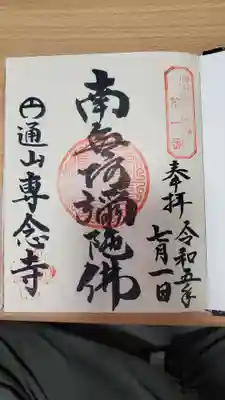 奉拝
令和五年
七月一日
南無阿彌陀佛
円通山専念寺